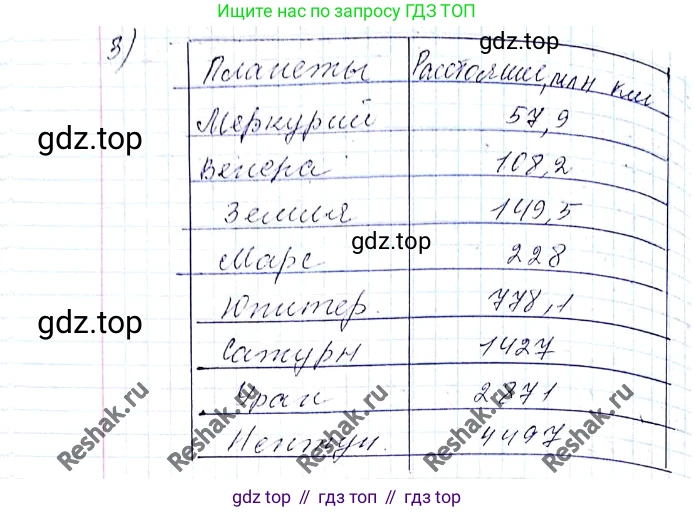 Ищите нас по запросу ГДЗ ТОП
3)
Планеты Расстояние, млн км
gdz.top
Меркурий 57,9
gdz.top
Венера 108,2
Земля 149,5
gdz.top
Марс 228
Юпитер. 778,1
gdz.top
Сатурн 1427
Уран 2871
Reshak.ru Reshak.ru Reshak.ru Reshak.ru
Нептун. 4497
gdz top // гдз топ // gdz top